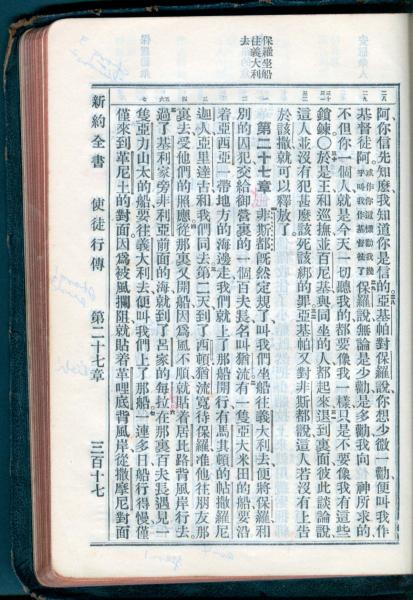 保羅坐船
往義大利
去
阿你信先知麼我知道你是信的亞基帕對保羅說你想少微一勸便叫我作
基督徒阿或作你這樣勸我幾乎叫我作基督徒了保羅說無論是少勸是多勸我向 神所求的
不但你一個人就是今天一切聽我的都要像我一樣只是不要像我有這些
鎖鍊〇於是王和巡撫並百尼基與同坐的人都起來退到裏面彼此談論說
這人並沒有犯甚麼該死該綁的罪亞基帕又對非斯都說這人若沒有上告
於該撒就可以釋放了
第二十七章 非斯都旣然定規了叫我們坐船往義大利去便將保羅和
別的囚犯交給御營裏的一個百夫長名叫猶流有一隻亞大米田的船要沿
着亞西亞一帶地方的海邊走我們就上了那船開行有馬其頓的帖撒羅尼
迦人亞里達古和我們同去第二天到了西頓猶流寬待保羅准他往朋友那
裏去受他們的照應從那裏又開船因爲風不順就貼着居比路背風岸行去
過了基利家旁非利亞前面的海就到了呂家的每拉在那裏百夫長遇見一
隻亞力山太的船要往義大利去便叫我們上了那船一連多日船行得慢僅
僅來到革尼土的對面因爲被風攔阻就貼着革哩底背風岸從撒摩尼對面
新約全書 使徒行傳 第二十七章 三百十七